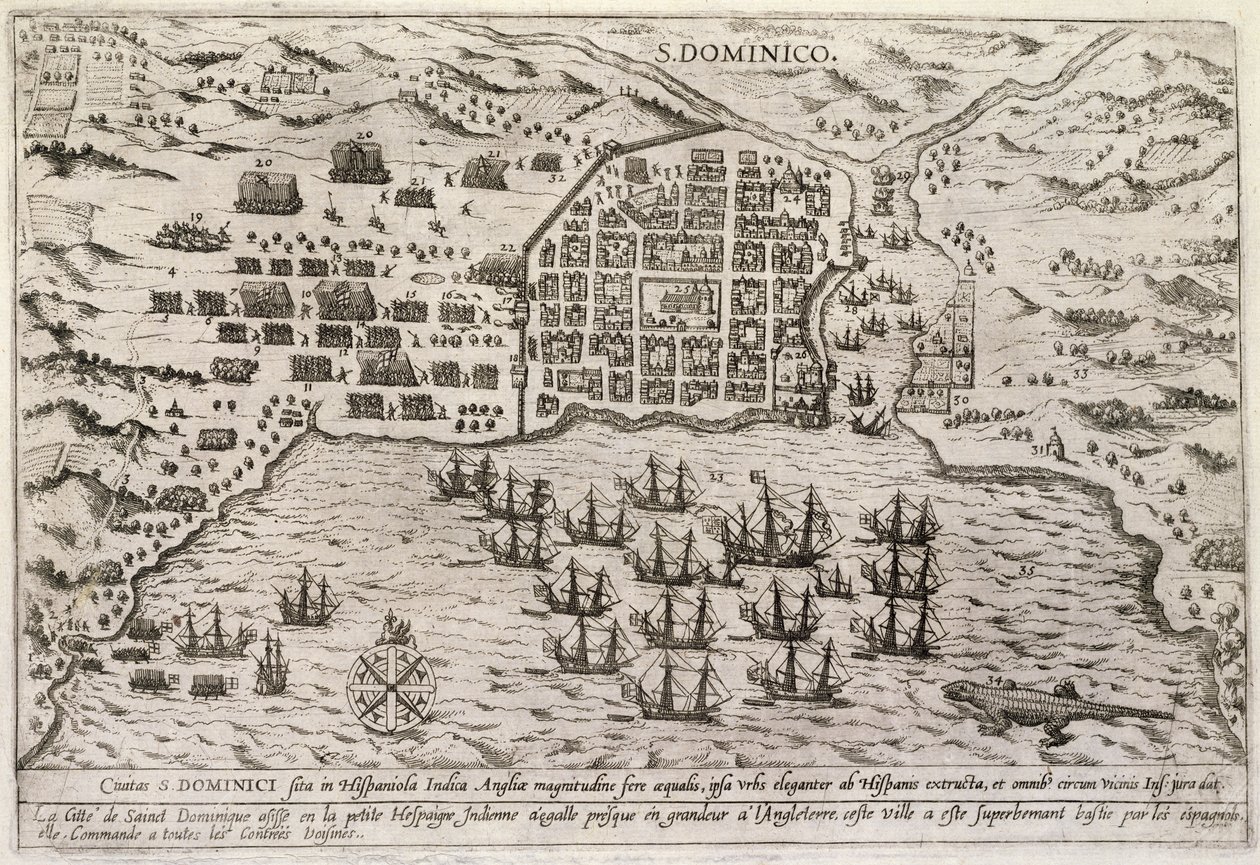 S.DOMINICO.
20
20
21
32
21
24
29
19
22
4
13
7
10
25
15
16
17
5
6
28
14
9
12
18
26
33
11
30
31
3
23
35
2
34
Ciuitas S.DOMINICI sita in Hispaniola Indica Angliæ magnitudine fere æqualis, ipsa vrbs eleganter ab Hispanis extructa, et omnib⁹ circum vicinis Insˢ iura dat.
La Citté de Sainct Dominique assise en la petite Hespaigne Indienne áegalle presque en grandeur a l'Angleterre, ceste ville a este superbemant bastie par les espagnols.
elle Commande a toutes les Contreés Voisines..